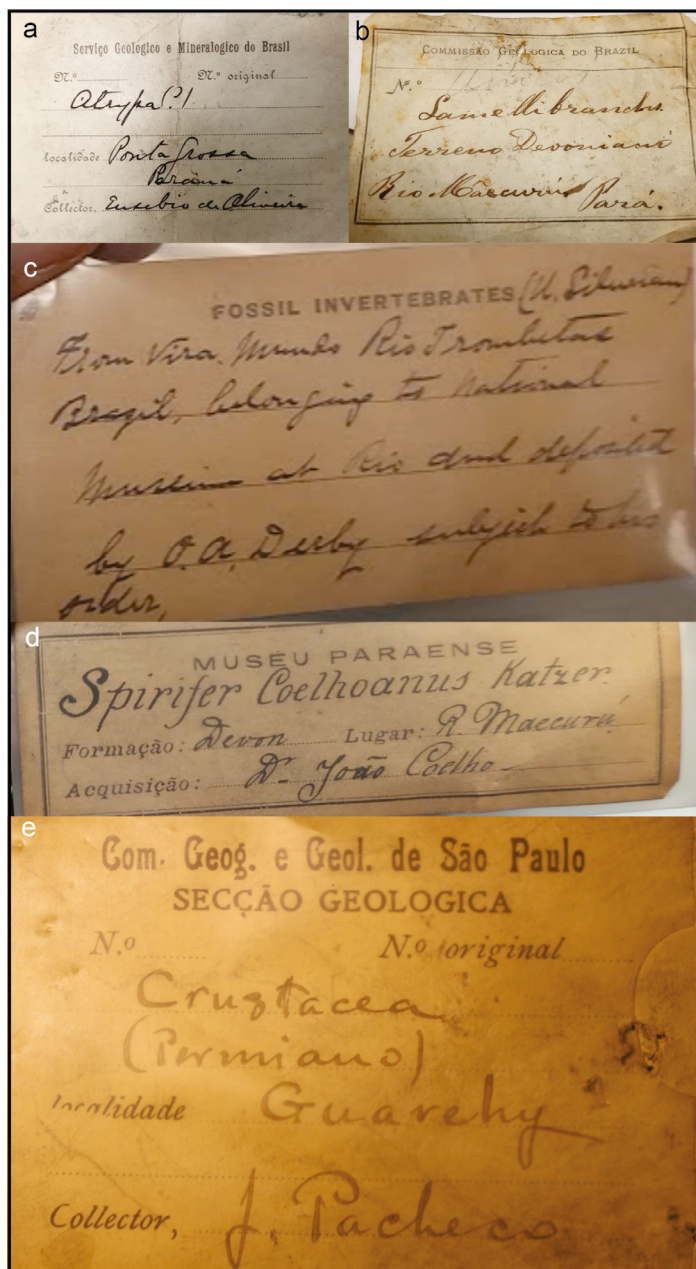 a
Serviço Geologico e Mineralogico do Brasil
N.º N.º original
Atrypa(?)
localidade Ponta Grossa
Paraná
Collector, Eusebio de Oliveira
b
COMMISSÃO GEOLOGICA DO BRAZIL
N.º
Lamellibranchs.
Terreno Devoniano
Rio Maecurú Pará.
c
FOSSIL INVERTEBRATES (U. Silurian)
From Vira Mundo Rio Trombetas
Brazil, belonging to National
Museum at Rio and deposited
by O. A. Derby subject to his
order,
d
MUSEU PARAENSE
Spirifer Coelhoanus Katzer.
Formação: Devon Lugar: R. Maecurú.
Acquisição: Dr João Coelho
e
Com. Geog. e Geol. de São Paulo
SECÇÃO GEOLOGICA
N.º N.º original
Crustacea
(Permiano)
localidade Guarehy
Collector, J. Pacheco